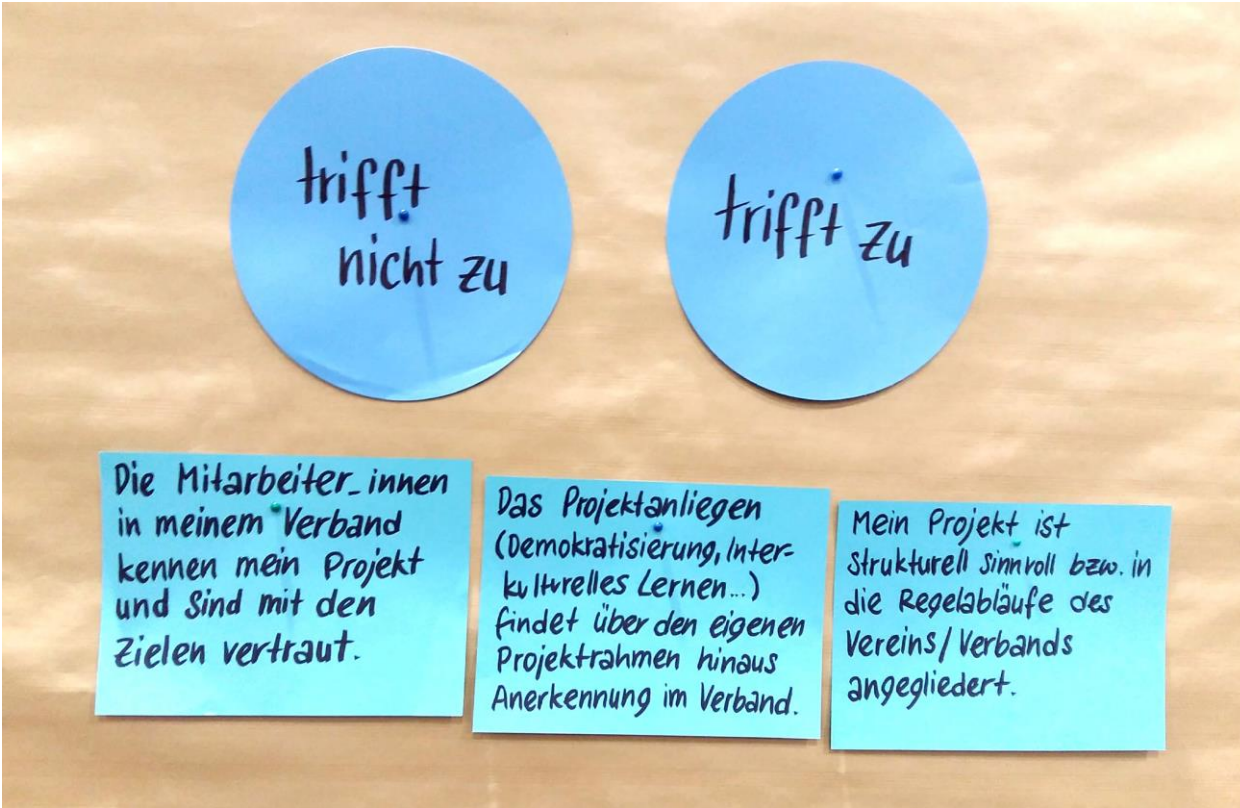 trifft
nicht zu
trifft zu
Die Mitarbeiter_innen
in meinem Verband
kennen mein Projekt
und sind mit den
Zielen vertraut.
Das Projektanliegen
(Demokratisierung, Inter-
kulturelles Lernen...)
findet über den eigenen
Projektrahmen hinaus
Anerkennung im Verband.
Mein Projekt ist
strukturell sinnvoll bzw. in
die Regelabläufe des
Vereins/Verbands
angegliedert.